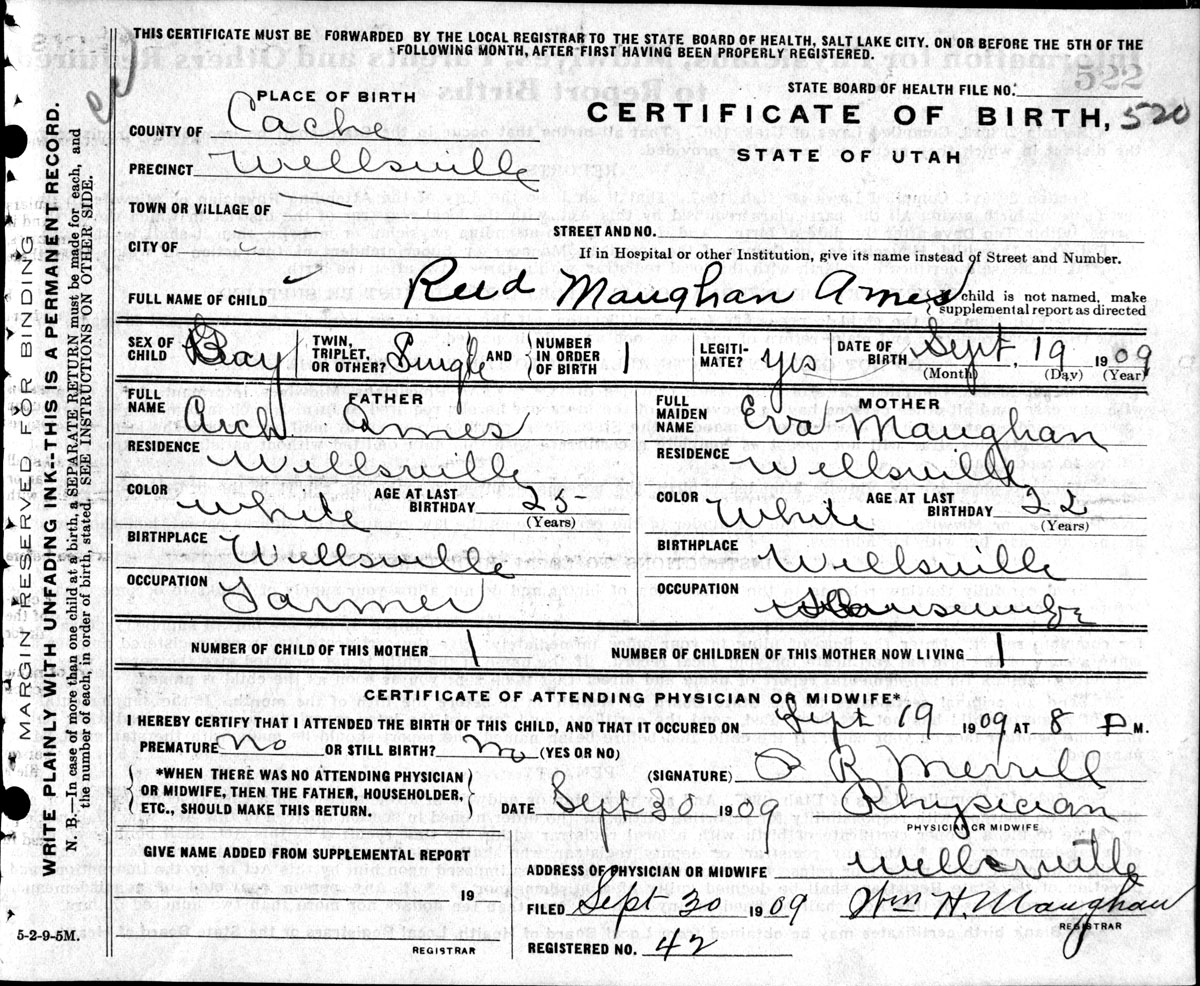 THIS CERTIFICATE MUST BE FORWARDED BY THE LOCAL REGISTRAR TO THE STATE BOARD OF HEALTH, SALT LAKE CITY. ON OR BEFORE THE 5TH OF THE
FOLLOWING MONTH, AFTER FIRST HAVING BEEN PROPERLY REGISTERED.
522
STATE BOARD OF HEALTH FILE NO.
PLACE OF BIRTH
CERTIFICATE OF BIRTH, 520
STATE OF UTAH
COUNTY OF Cache
PRECINCT Wellsville
TOWN OR VILLAGE OF
STREET AND NO.
CITY OF
If in Hospital or other Institution, give its name instead of Street and Number.
FULL NAME OF CHILD Reed Maughan Ames
child is not named, make
supplemental report as directed
SEX OF CHILD Boy TWIN, TRIPLET, OR OTHER? Single AND NUMBER IN ORDER OF BIRTH 1 LEGITI-MATE? yes DATE OF BIRTH Sept 19 1909
(Month) (Day) (Year)
FATHER
FULL NAME Ames
RESIDENCE Wellsville
COLOR White AGE AT LAST BIRTHDAY 25
(Years)
BIRTHPLACE Wellsville
OCCUPATION Farmer
MOTHER
FULL MAIDEN NAME Eva Maughan
RESIDENCE Wellsville
COLOR White AGE AT LAST BIRTHDAY 22
(Years)
BIRTHPLACE Wellsville
OCCUPATION Housewife
NUMBER OF CHILD OF THIS MOTHER 1 NUMBER OF CHILDREN OF THIS MOTHER NOW LIVING 1
CERTIFICATE OF ATTENDING PHYSICIAN OR MIDWIFE*
I HEREBY CERTIFY THAT I ATTENDED THE BIRTH OF THIS CHILD, AND THAT IT OCCURED ON Sept 19 1909, AT 8 P M.
PREMATURE No OR STILL BIRTH? no (YES OR NO)
*WHEN THERE WAS NO ATTENDING PHYSICIAN
OR MIDWIFE, THEN THE FATHER, HOUSEHOLDER,
ETC., SHOULD MAKE THIS RETURN.
(SIGNATURE) O R Merrill
DATE Sept 20 1909 Physician
PHYSICIAN OR MIDWIFE
GIVE NAME ADDED FROM SUPPLEMENTAL REPORT
19
REGISTRAR
ADDRESS OF PHYSICIAN OR MIDWIFE Wellsville
FILED Sept 30 1909 Wm H. Maughan
REGISTRAR
REGISTERED NO. 42
5-2-9-5M.
MARGIN RESERVED FOR BINDING
WRITE PLAINLY WITH UNFADING INK---THIS IS A PERMANENT RECORD.
N. B.—In case of more than one child at a birth, a SEPARATE RETURN must be made for each, and
the number of each, in order of birth, stated. SEE INSTRUCTIONS ON OTHER SIDE.